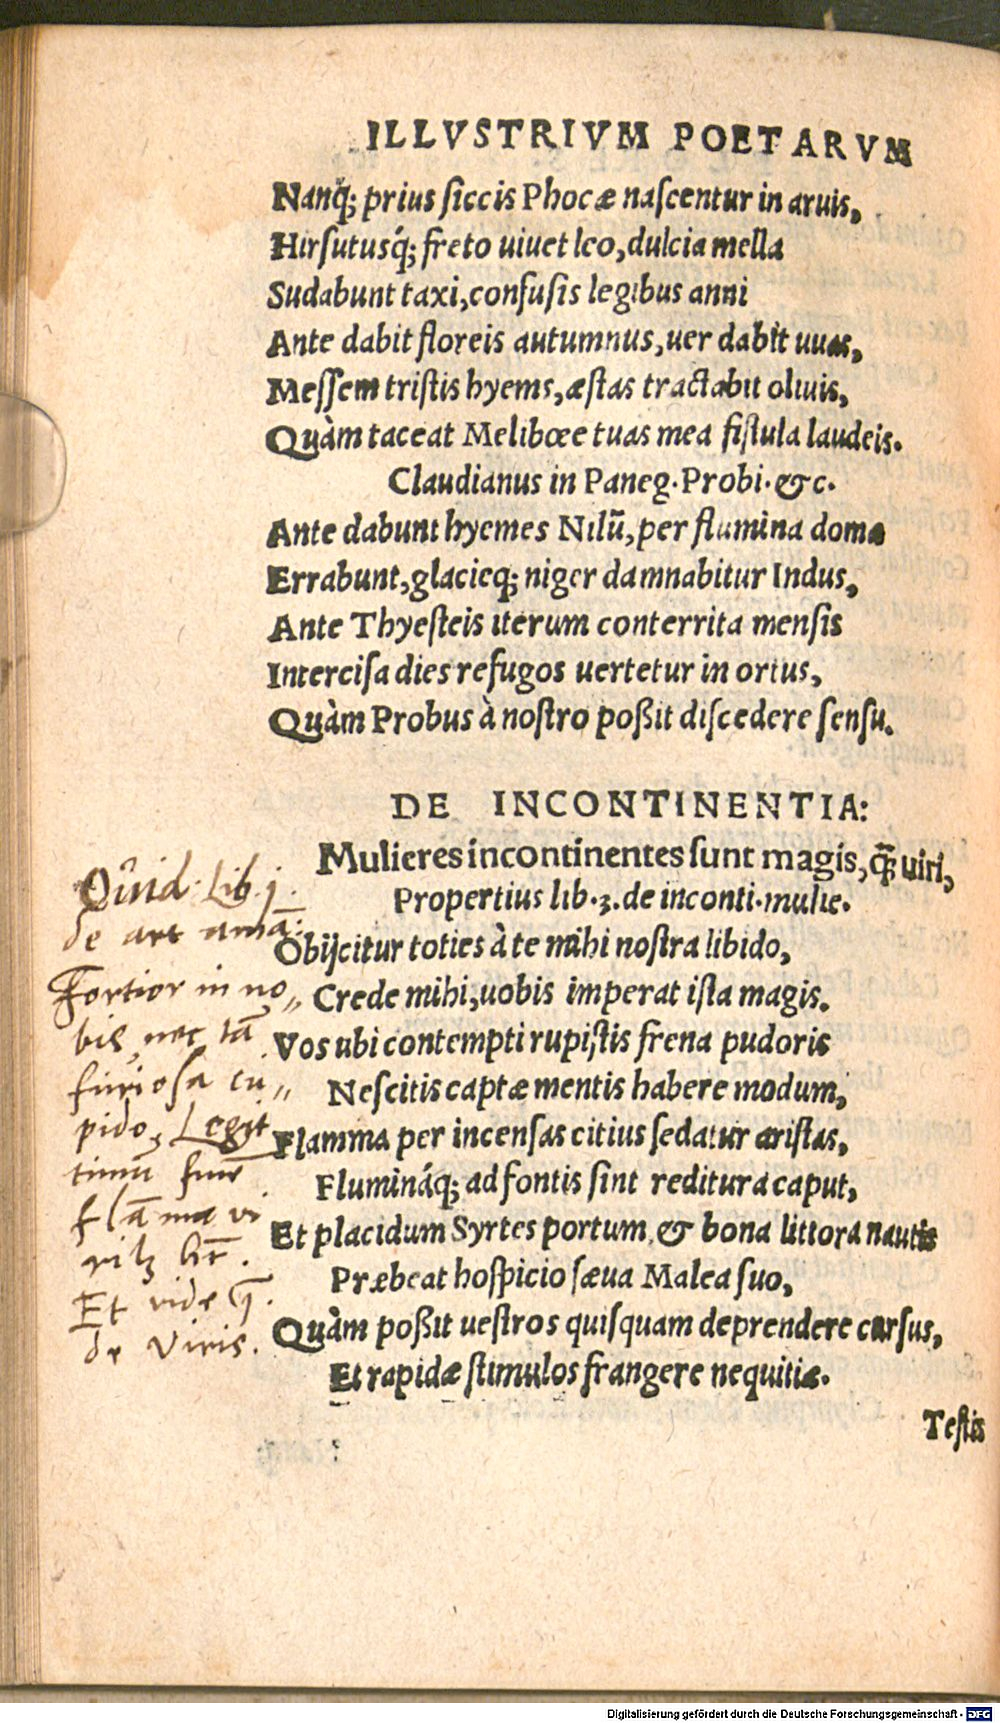 ILLVSTRIVM POETARVM
Nanq́; prius ſiccis Phocæ naſcentur in aruis,
Hirſutusq́; freto uiuet leo, dulcia mella
Sudabunt taxi, confuſis legibus anni
Ante dabit floreis autumnus, uer dabit uuas,
Meſſem triſtis hyems, æſtas tractabit oliuis,
Quàm taceat Melibœe tuas mea fiſtula laudeis.
Claudianus in Paneg. Probi. &c.
Ante dabunt hyemes Nilū, per flumina domæ
Errabunt, glacieq; niger damnabitur Indus,
Ante Thyeſteis iterum conterrita menſis
Interciſa dies refugos uertetur in ortus,
Quàm Probus à noſtro poßit diſcedere ſenſu.
DE INCONTINENTIA:
Mulieres incontinentes ſunt magis, q̄ꝫ uiri,
Propertius lib. 3. de inconti. mulie.
Obijcitur toties à te mihi noſtra libido,
Crede mihi, uobis imperat iſta magis.
Vos ubi contempti rupiſtis frena pudoris
Neſcitis captæ mentis habere modum,
Flamma per incenſas citius ſedatur ariſtas,
Fluminá́q; ad fontis ſint reditura caput,
Et placidum Syrtes portum, & bona littora nautis
Præbeat hoſpicio ſæua Malea ſuo,
Quàm poßit ueſtros quiſquam deprendere curſus,
Et rapidæ ſtimulos frangere nequitiæ.
Teſtis
Ouid. Lib. j.
de art amā:
Fortior in no„
bis nec tā
furioſa cu„
pido, Legit
timū finē
flāma vi
rilꝫ hēt.
Et vide
de Viris.
Digitalisierung gefördert durch die Deutsche Forschungsgemeinschaft - DFG